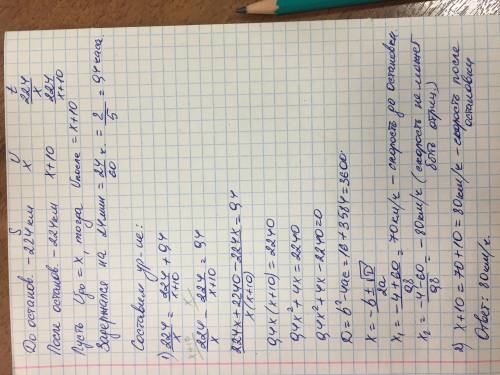 S V t
До останов. – 224км x 224/x
После останов – 224км x+10 224/x+10
Пусть Vдо = x, тогда Vпосле = x+10
Задержался на 24мин = 24/60 ч. = 2/5 = 0,4 часа.
Составим ур-ие:
1) 224/x = 224/x+10 + 0,4
224/x – 224/x+10 = 0,4
224x+2240–224x/x(x+10) = 0,4
0,4x(x+10) = 2240
0,4x²+4x = 2240
0,4x²+4x–2240=0
D = b²–4ac = 16+3584=3600.
x = –b±√D/2a
x₁ = –4+60/0,8 = 70км/ч – скорость до остановки
x₂ = –4–60/0,8 = –80км/ч (скорость не может быть отриц.)
2) x+10 = 70+10 = 80км/ч – скорость после остановки
Ответ: 80км/ч.